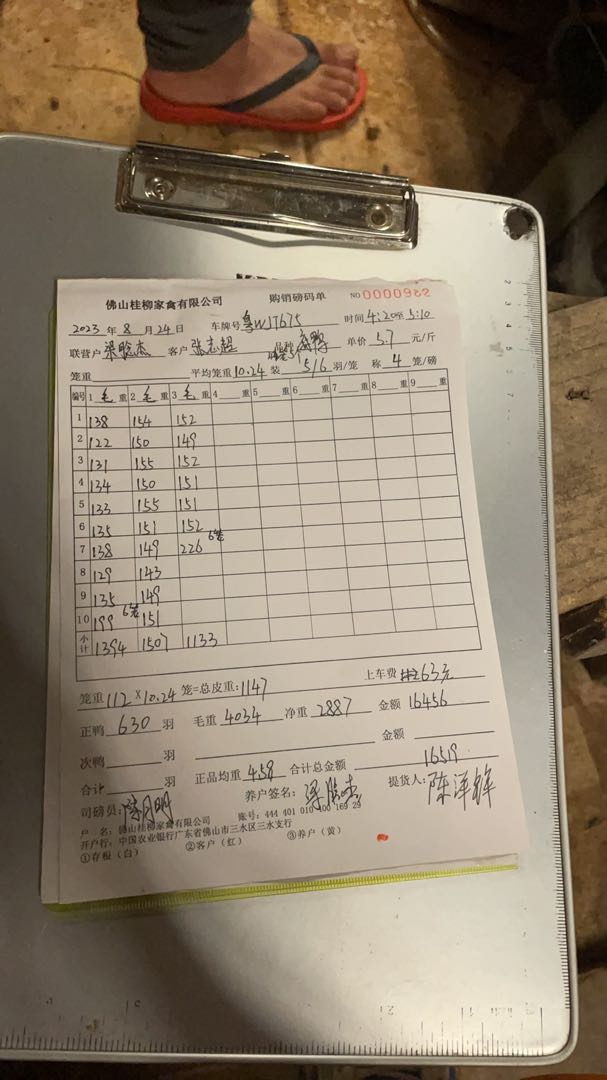 佛山桂柳家禽有限公司 购销磅码单 NO 0000982
2023 年 8 月 24 日 车牌号 粤WJ7675 时间 4:20至5:10
联营户 梁聪杰 客户 张志超 品种 单价 5.7 元/斤
笼重 平均笼重 10.24 装 5/6 羽/笼 称 4 笼/磅
编号 1 毛 重 2 毛 重 3 毛 重 4 重 5 重 6 重 7 重 8 重 9 重
1 138 154 152
2 122 150 149
3 131 155 152
4 134 150 151
5 133 155 151
6 135 151 152
7 138 149 226 6笼
8 129 143
9 135 149
10 199 6笼 151
小计 1394 1507 1133
笼重 112 X 10.24 笼=总皮重: 1147 上车费 63元
正鸭 630 羽 毛重 4034 净重 2887 金额 16456
次鸭 羽 金额
合计 羽 正品均重 458 合计总金额 16519
司磅员: 陈月明 养户签名: 梁聪杰 提货人: 陈泽锋
户 名: 佛山桂柳家禽有限公司 账号: 444 401 010 400 169 29
开户行: 中国农业银行广东省佛山市三水区三水支行
①存根（白） ②客户（红） ③养户（黄）